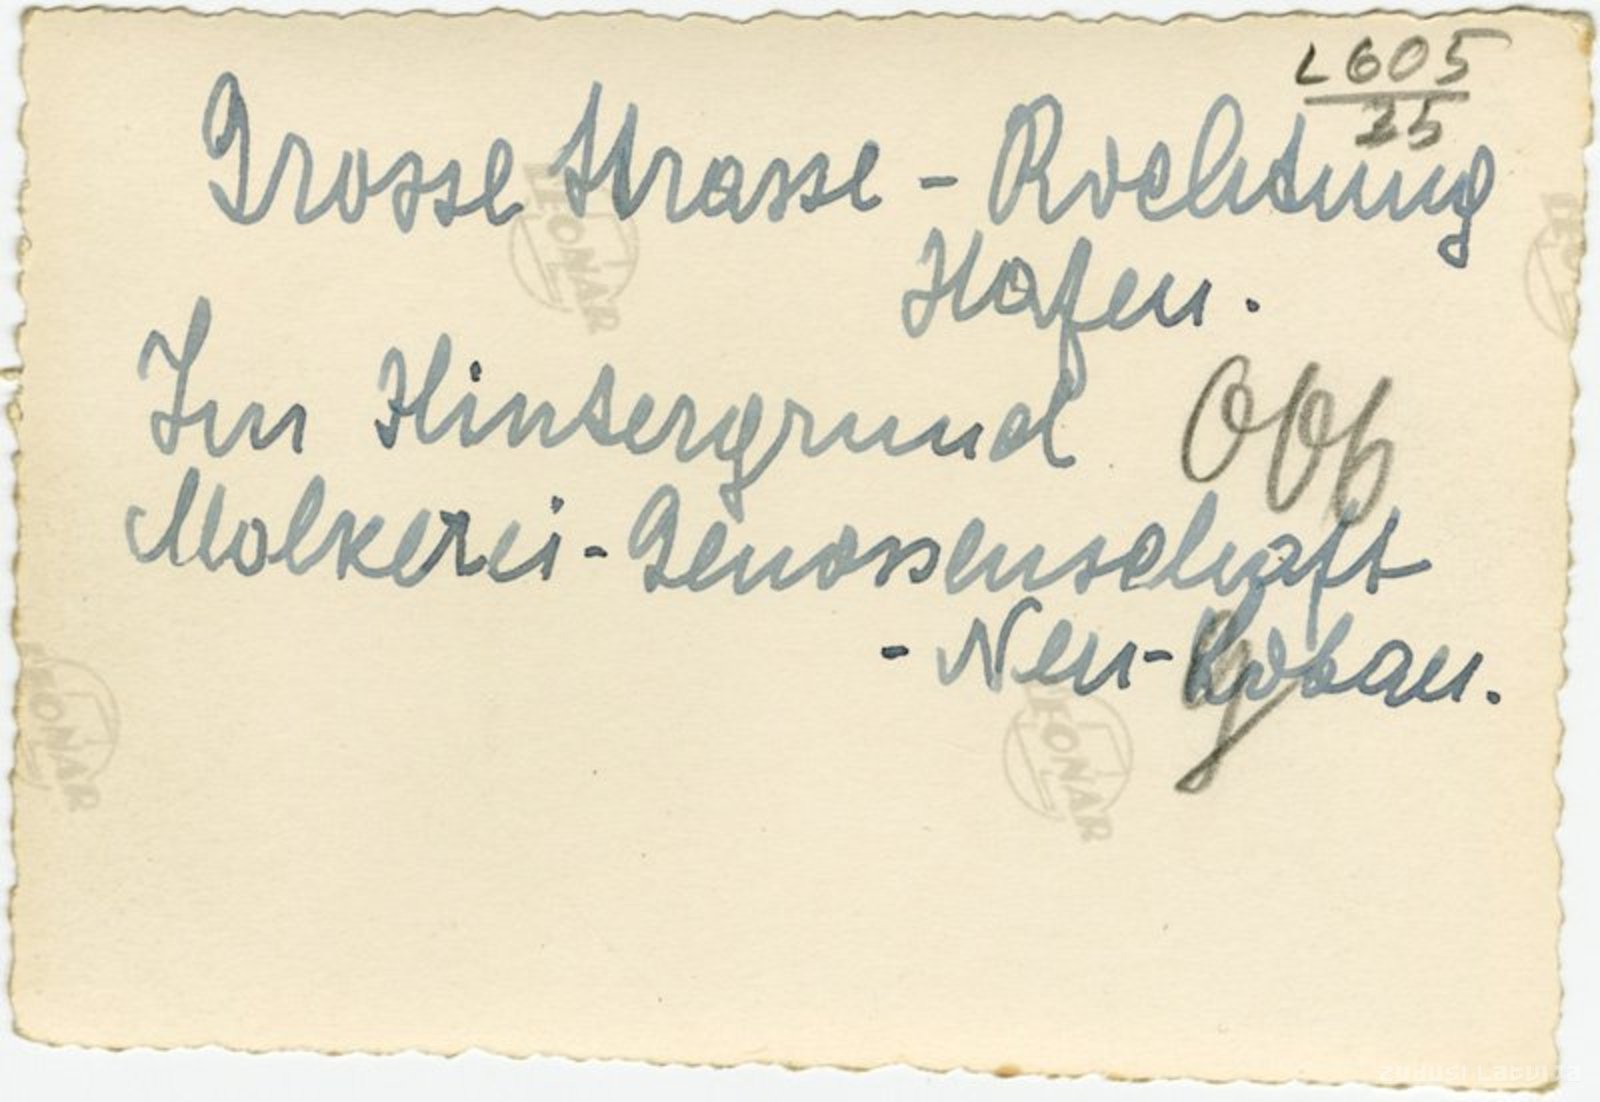 L 605
35
Grosse Strasse - Richtung
Hafen.
Im Hintergrund
Molkerei-Genossenschaft
- Neu-Libau.
LEONAR
LEONAR
LEONAR
zudusi Latvija